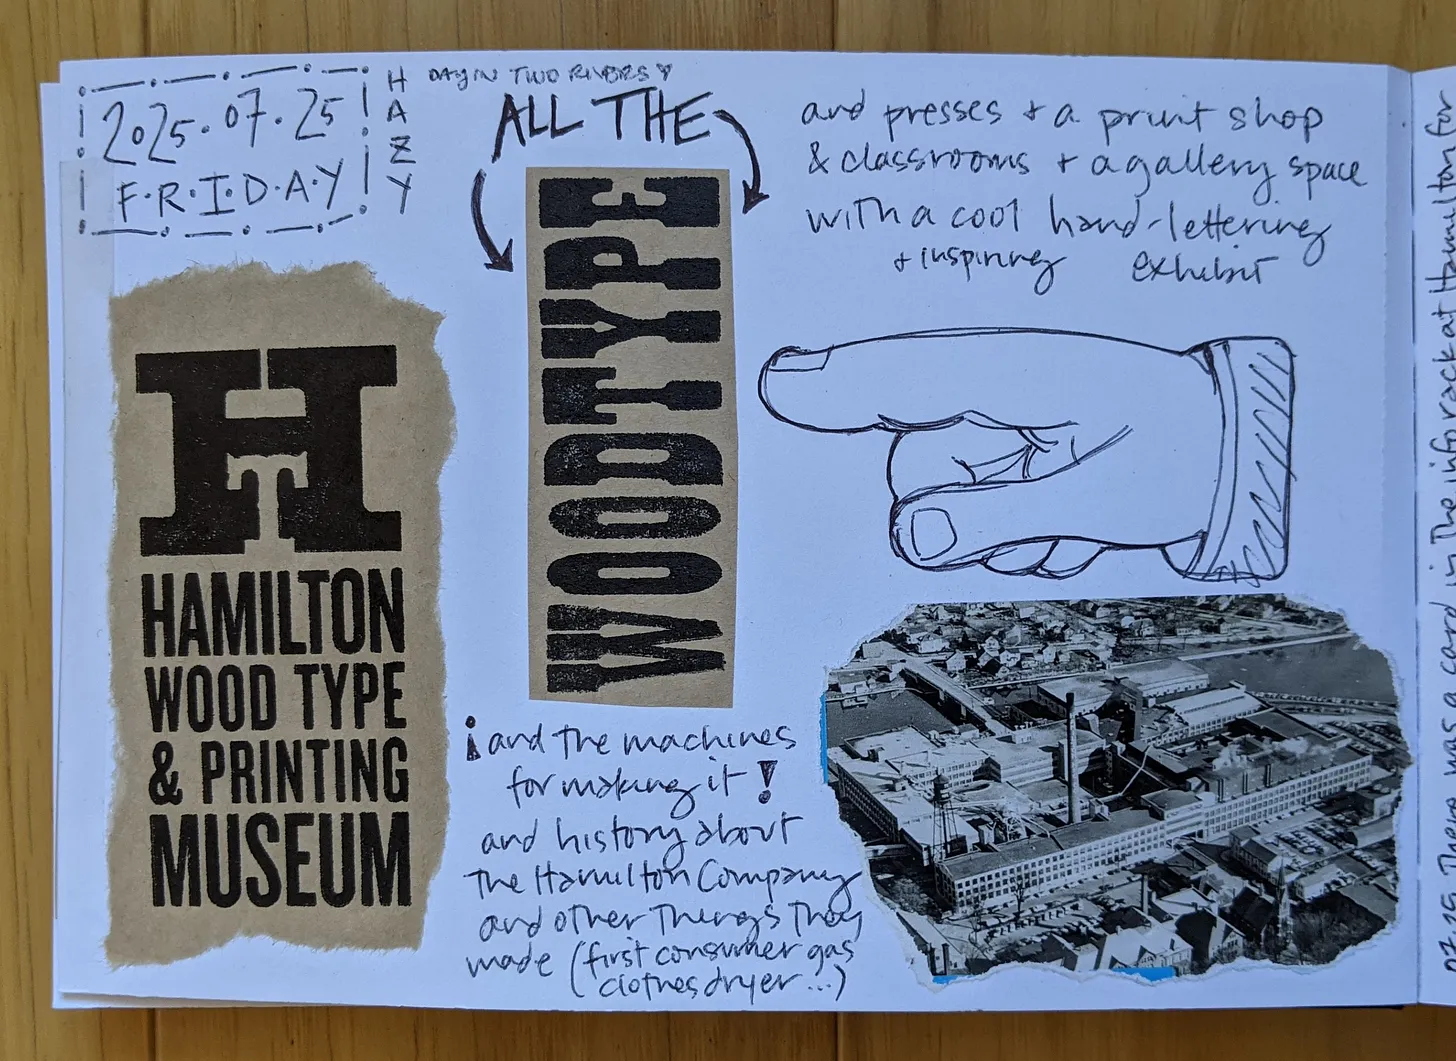 2025.07.25
F.R.I.D.A.Y
HAZY
DAY IN TWO RIVERS
ALL THE
WOODTYPE
H
T
HAMILTON
WOOD TYPE
& PRINTING
MUSEUM
¡and the machines
for making it!
and history about
the Hamilton Company
and other things they
made (first consumer gas
clothes dryer...)
and presses + a print shop
& classrooms + a gallery space
with a cool hand-lettering
+ inspiring exhibit
info rack at Hamilton for